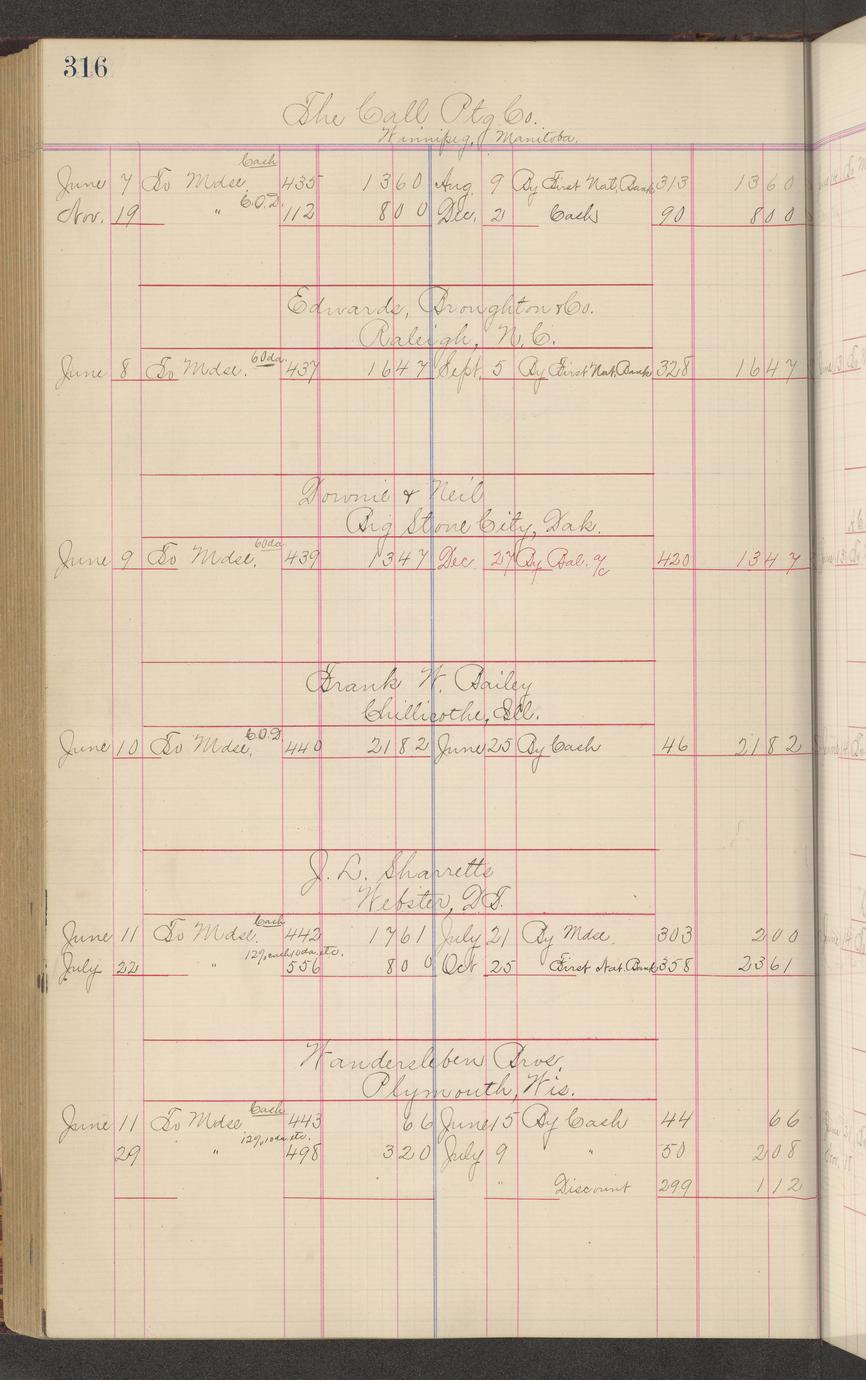 316
The Call Ptg Co.
Winnipeg, Manitoba.
Cash
June 7 To Mdse. 435 13 60 Aug. 9 By First Nat. Bank 313 13 60
C.O.D.
Nov. 19 " 112 8 00 Dec. 2 Cash 90 8 00
Edwards, Broughton & Co.
Raleigh, N.C.
June 8 To Mdse. 60 da. 437 16 47 Sept. 5 By First Nat. Bank 328 16 47
Downie & Neil
Big Stone City, Dak.
June 9 To Mdse. 60 da 439 13 47 Dec 27 By Bal. a/c 420 13 47
Frank W. Bailey
Chillicothe, Ill.
June 10 To Mdse. C.O.D. 440 21 82 June 25 By Cash 46 21 82
J. L. Sharretts
Webster, D.T.
June 11 To Mdse. Cash 442 17 61 July 21 By Mdse. 303 2 00
July 22 " 556 8 00 Oct 25 First Nat. Bank 358 23 61
Wandersleben Bros.
Plymouth, Wis.
June 11 To Mdse Cash 443 66 June 15 By Cash 44 66
29 " 498 3 20 July 9 " 50 2 08
" Discount 299 1 12